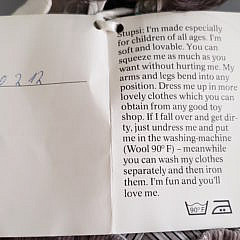 2 1 2
Stupsi: I'm made especially
for children of all ages. I'm
soft and lovable. You can
squeeze me as much as you
want without hurting me. My
arms and legs bend into any
position. Dress me up in more
lovely clothes which you can
obtain from any good toy
shop. If I fall over and get dir-
ty, just undress me and put
me in the washing-machine
(Wool 90° F) – meanwhile
you can wash my clothes
separately and then iron
them. I'm fun and you'll
love me.
90°F